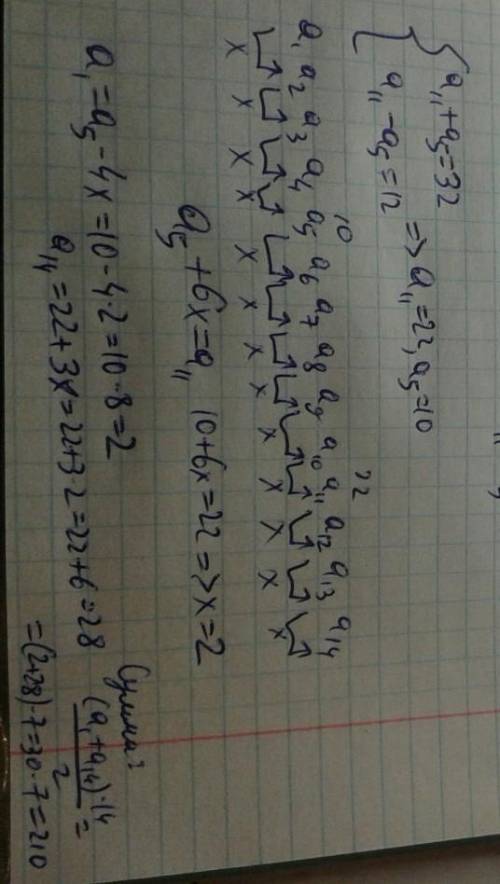 a₁₁+a₅=32
a₁₁-a₅=12 => a₁₁=22, a₅=10
10 22
a₁ a₂ a₃ a₄ a₅ a₆ a₇ a₈ a₉ a₁₀ a₁₁ a₁₂ a₁₃ a₁₄
x x x x x x x x x x x x x
a₅+6x=a₁₁ 10+6x=22 => x=2
a₁=a₅-4x=10-4·2=10-8=2
a₁₄=22+3x=22+3·2=22+6=28
Сумма:
(a₁+a₁₄)·14
2 =
=(2+28)·7=30·7=210